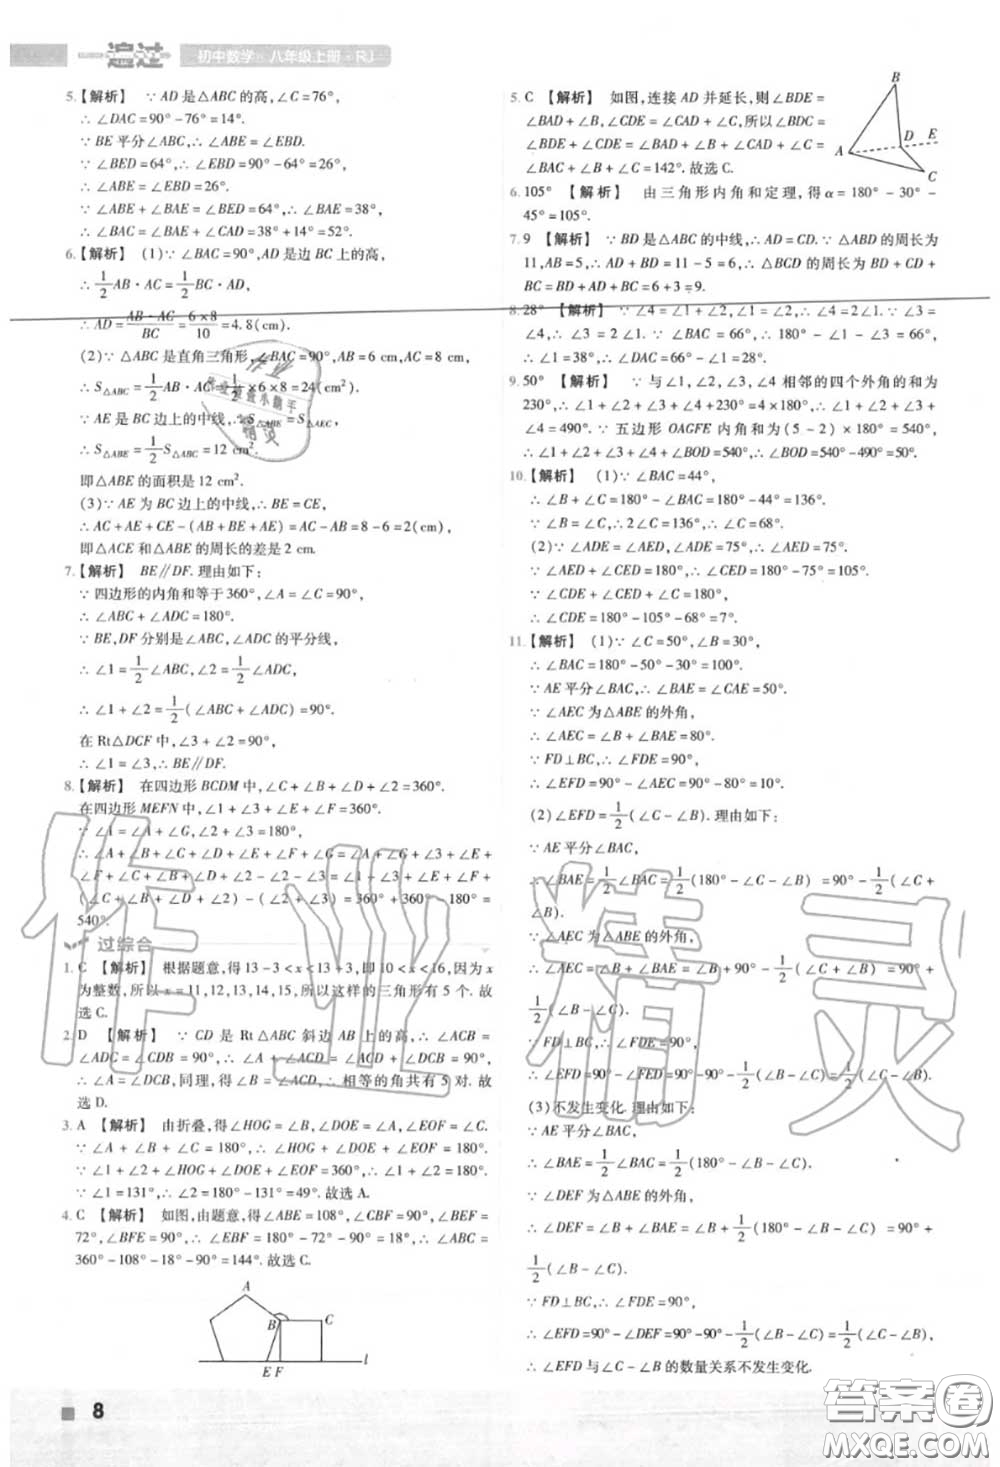 一遍过 初中数学 八年级上册·RJ
5.【解析】 ∵ AD 是△ABC 的高,∠C=76°,
∴ ∠DAC=90°-76°=14°.
∵ BE 平分∠ABC,∴ ∠ABE=∠EBD.
∵ ∠BED=64°,∴ ∠EBD=90°-64°=26°.
∴ ∠ABE=∠EBD=26°.
∵ ∠ABE+∠BAE=∠BED=64°,∴ ∠BAE=38°,
∴ ∠BAC=∠BAE+∠CAD=38°+14°=52°.
6.【解析】 (1)∵ ∠BAC=90°,AD是边 BC 上的高,
∴ 1/2 AB·AC=1/2 BC·AD,
∴ AD=AB·AC/BC=6×8/10=4.8(cm).
(2)∵ △ABC 是直角三角形,∠BAC=90°,AB=6 cm,AC=8 cm,
∴ S△ABC=1/2 AB·AC=1/2×6×8=24(cm²).
∵ AE 是 BC 边上的中线,∴ S△ABE=S△AEC,
∴ S△ABE=1/2 S△ABC=12 cm².
即△ABE 的面积是12 cm².
(3)∵ AE 为 BC 边上的中线,∴ BE=CE,
∴ AC+AE+CE-(AB+BE+AE)=AC-AB=8-6=2(cm),
即△ACE 和△ABE 的周长的差是2 cm.
7.【解析】 BE∥DF. 理由如下:
∵ 四边形的内角和等于360°,∠A=∠C=90°,
∴ ∠ABC+∠ADC=180°.
∵ BE,DF 分别是∠ABC,∠ADC 的平分线,
∴ ∠1=1/2∠ABC,∠2=1/2∠ADC,
∴ ∠1+∠2=1/2(∠ABC+∠ADC)=90°.
在 Rt△DCF 中,∠3+∠2=90°,
∴ ∠1=∠3,∴ BE∥DF.
8.【解析】 在四边形 BCDM 中,∠C+∠B+∠D+∠2=360°,
在四边形 MEFN 中,∠1+∠3+∠E+∠F=360°.
∵ ∠1=∠A+∠G,∠2+∠3=180°,
∴ ∠A+∠B+∠C+∠D+∠E+∠F+∠G=∠A+∠G+∠3+∠E+
∠F+∠B+∠C+∠D+∠2-∠2-∠3=∠1+∠3+∠E+∠F+
(∠C+∠B+∠D+∠2)-(∠2+∠3)=360°+360°-180°=
540°.
过综合
1. C 【解析】 根据题意,得13-3<x<13+3,即10<x<16,因为x
为整数,所以x=11,12,13,14,15,所以这样的三角形有5个. 故
选C.
2. D 【解析】 ∵ CD 是 Rt△ABC 斜边 AB 上的高,∴ ∠ACB
=∠ADC=∠CDB=90°,∴ ∠A+∠ACD=∠ACD+∠DCB=90°,
∴ ∠A=∠DCB,同理,得∠B=∠ACD,∴ 相等的角共有5对. 故
选D.
3. A 【解析】 由折叠,得∠HOG=∠B,∠DOE=∠A,∠EOF=∠C.
∵ ∠A+∠B+∠C=180°,∴ ∠HOG+∠DOE+∠EOF=180°.
∵ ∠1+∠2+∠HOG+∠DOE+∠EOF=360°,∴ ∠1+∠2=180°.
∵ ∠1=131°,∴ ∠2=180°-131°=49°. 故选A.
4. C 【解析】 如图,由题意,得∠ABE=108°,∠CBF=90°,∠BEF=
72°,∠BFE=90°,∴ ∠EBF=180°-72°-90°=18°,∴ ∠ABC=
360°-108°-18°-90°=144°. 故选C.
A
B
C
E F
l
8
5. C 【解析】 如图,连接 AD 并延长,则∠BDE=
∠BAD+∠B,∠CDE=∠CAD+∠C,所以∠BDC=
∠BDE+∠CDE=∠BAD+∠B+∠CAD+∠C=
∠BAC+∠B+∠C=142°. 故选C.
B
D
E
A
C
6. 105° 【解析】 由三角形内角和定理,得 α=180°-30°-
45°=105°.
7. 9 【解析】 ∵ BD 是△ABC 的中线,∴ AD=CD. ∵ △ABD 的周长为
11,AB=5,∴ AD+BD=11-5=6,∴ △BCD 的周长为 BD+CD+
BC=BD+AD+BC=6+3=9.
8. 28° 【解析】 ∵ ∠4=∠1+∠2,∠1=∠2,∴ ∠4=2∠1. ∵ ∠3=
∠4,∴ ∠3=2∠1. ∵ ∠BAC=66°,∴ 180°-∠1-∠4=66°,
∴ ∠1=38°,∴ ∠DAC=66°-∠1=28°.
9. 50° 【解析】 ∵ 与∠1,∠2,∠3,∠4 相邻的四个外角的和为
230°,∴ ∠1+∠2+∠3+∠4+230°=4×180°,∴ ∠1+∠2+∠3+
∠4=490°. ∵ 五边形 OAGFE 内角和为(5-2)×180°=540°,
∴ ∠1+∠2+∠3+∠4+∠BOD=540°,∴ ∠BOD=540°-490°=50°.
10.【解析】 (1)∵ ∠BAC=44°,
∴ ∠B+∠C=180°-∠BAC=180°-44°=136°.
∵ ∠B=∠C,∴ 2∠C=136°,∴ ∠C=68°.
(2)∵ ∠ADE=∠AED,∠ADE=75°,∴ ∠AED=75°.
∵ ∠AED+∠CED=180°,∴ ∠CED=180°-75°=105°.
∵ ∠CDE+∠CED+∠C=180°,
∴ ∠CDE=180°-105°-68°=7°.
11.【解析】 (1)∵ ∠C=50°,∠B=30°,
∴ ∠BAC=180°-50°-30°=100°.
∵ AE 平分∠BAC,∴ ∠BAE=∠CAE=50°.
∵ ∠AEC 为△ABE 的外角,
∴ ∠AEC=∠B+∠BAE=80°.
∵ FD⊥BC,∴ ∠EDF=90°,
∴ ∠EFD=90°-∠AEC=90°-80°=10°.
(2)∠EFD=1/2(∠C-∠B). 理由如下:
∵ AE 平分∠BAC,
∴ ∠BAE=1/2∠BAC=1/2(180°-∠C-∠B)=90°-1/2(∠C+
∠B).
∵ ∠AEC 为△ABE 的外角,
∴ ∠AEC=∠B+∠BAE=∠B+90°-1/2(∠C+∠B)=90°+
1/2(∠B-∠C).
∵ FD⊥BC,∴ ∠FDE=90°,
∴ ∠EFD=90°-∠FED=90°-90°-1/2(∠B-∠C)=1/2(∠C-∠B).
(3)不发生变化. 理由如下:
∵ AE 平分∠BAC,
∴ ∠BAE=1/2∠BAC=1/2(180°-∠B-∠C).
∵ ∠DEF 为△ABE 的外角,
∴ ∠DEF=∠B+∠BAE=∠B+1/2(180°-∠B-∠C)=90°+
1/2(∠B-∠C).
∵ FD⊥BC,∴ ∠FDE=90°,
∴ ∠EFD=90°-∠DEF=90°-90°-1/2(∠B-∠C)=1/2(∠C-∠B),
∴ ∠EFD 与∠C-∠B 的数量关系不发生变化.
作业精灵
答案圈
MXQE.COM